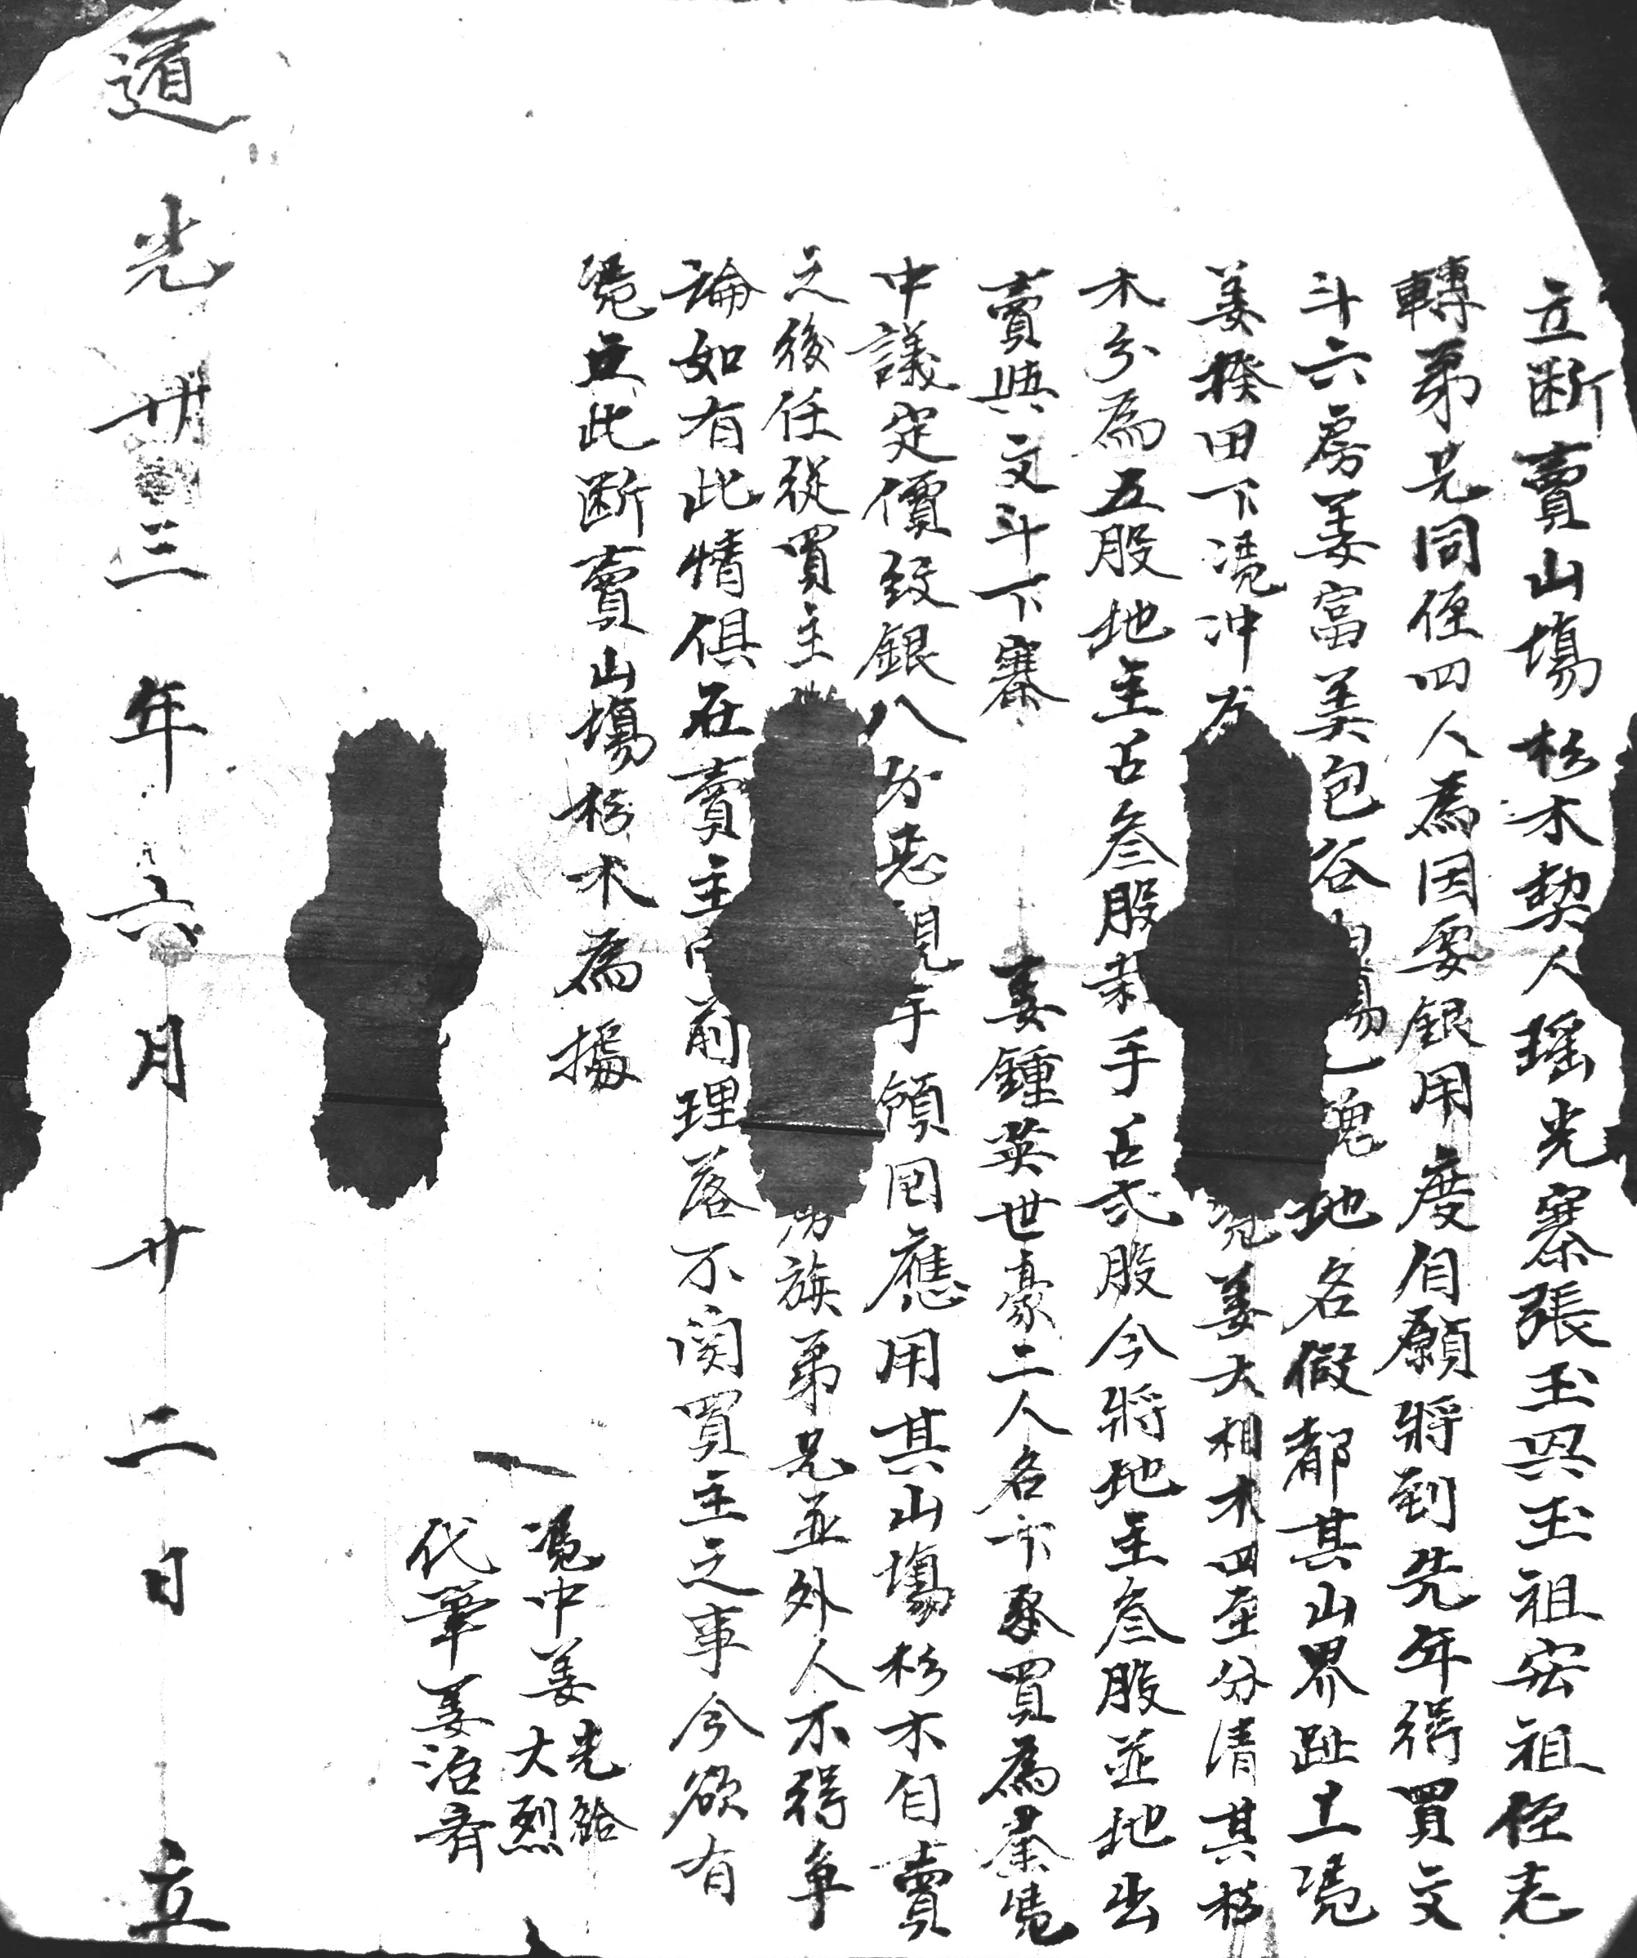 立断賣山塲杉木契人瑶光寨張玉興玉祖宏祖侄老
轉弟兄同侄四人為因要銀用度自願將到先年得買文
斗六房姜富美包谷塲一塊地名假都其山界趾上凴
姜揆田下凴冲凴姜大相木四至分清其杉
木分為五股地主占叁股栽手占弍股今將地主叁股並地出
賣與文斗下寨姜鍾英世豪二人名下承買為業凴
中議定價紋銀八分親手領回應用其山塲杉木自賣
之後任從買主房族弟兄並外人不得争
論如有此情俱在賣主前理落不関買主之事今欲有
凴立此断賣山塲杉木為據
凴中姜光給大烈
代筆姜治齊
道光卅三年六月廿二日立